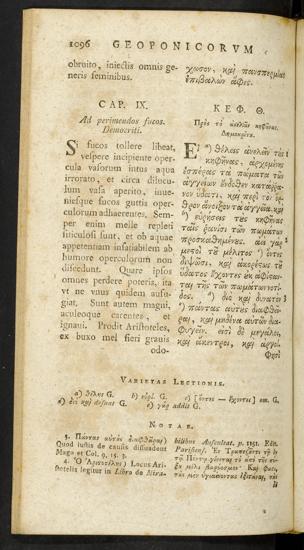 1096 GEOPONICORVM
obruito, iniectis omnis ge-
neris feminibus.
CAP. IX.
Ad perimendos fucos.
Democriti.
Si fucos tollere libeat,
vespere incipiente oper-
cula vasorum intus aqua
irrorato, et circa dilucu-
lum vasa aperito, inue-
niesque fucos guttis oper-
culorum adhaerentes. Sem-
per enim melle repleti
siticulosi sunt, et ob aquae
appetentiam insatiabilem ab
humore operculorum non
discedunt. Quare ipsos
omnes perdere poteris, ita
vt ne vnus quidem aufu-
giat. Sunt autem magni,
aculeoque carentes, et
ignaui. Prodit Aristoteles,
ex buxo mel fieri grauis
odo-
χωσον, καὶ πανσπερμίαν
ἐπιβαλὼν ἄφες.
ΚΕΦ. Θ.
Πρὸς τὸ ἀνελεῖν κηφῆνας.
Δημοκρίτου.
Εἰ a) θέλεις ἀνελεῖν τοὺς
κηφῆνας, ἀρχομένης
ἑσπέρας τὰ πώματα τῶν
ἀγγείων ἔνδοθεν κατάῤῥα-
νον ὕδατι, καὶ περὶ τὸν ὄρ-
θρον ἄνοιξον τὰ ἀγγεῖα, καὶ
b) εὑρήσεις τοὺς κηφῆνας
ταῖς ῥανίσι τῶν πωμάτων
προσκαθημένους. ἀεὶ γὰρ
μεστοὶ τοῦ μέλιτος
διψῶσι, καὶ ἀκορέτως τοῦ
ὕδατος ἔχοντες οὐκ ἀφίσταν-
ται τῆς τῶν πωμάτων νοτί-
δος. d) διὸ καὶ δυνατὸν
πάντας αὐτοὺς διαφθεῖ-
ραι, καὶ μηδένα αὐτῶν δια-
φυγεῖν. εἰσὶ δὲ μεγάλοι,
καὶ ἄκεντροι, καὶ ἀργοί.
Φησὶ
VARIETAS LECTIONIS.
a) θέλεις G. b) εὑρή. G. c) [ὄντες — ἔχοντες] om. G.
d) διὸ καὶ desunt G. e) γὰρ addit G.
NOTAE.
3. Πάντας αὐτοὺς διαφθεῖραι)
Quod iustis de causis dissuadent
Mago et Col. 9, 15. 3.
4. Ὁ Ἀριστοτέλης) Locus Ari-
stotelis legitur in Libro de Mira-
bilibus Auscultat. p. 1151. Edit.
Parisiens. Ἐν Τραπεζοῦντι τῇ ἐν
τῷ Πόντῳ γίνεται τὸ ἀπὸ τῆς πύ-
ξου μέλι βαρύοσμον· Καὶ φασι,
τοὺς μὲν ὑγιαίνοντας ἐξιστάναι, τοὺς